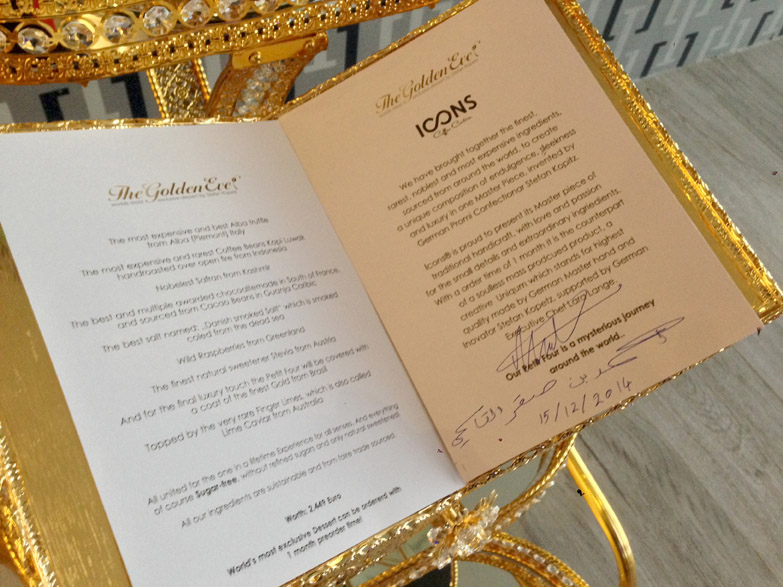 The Golden Eve
The most expensive and best Alba truffle
from Alba (Piemont) Italy
The most expensive and rarest Coffee Beans Kopi Luwak,
handroasted over open fire from Indonesia
Nobelest Safran from Kashmir
The best and multiple awarded chocodlademade in South of France,
and sourced from Cacao Beans in
The best salt named: „Danish smoked Salt" which is smoked
coled from the dead sea
Wild Raspberries from Greenland
The finest natural sweetener Stevia from Austria
And for the final luxury touch the Petit Four will be covered with
a coat of the finest Gold from Brasil
Topped by the very rare Finger Limes, which is also called
Lime Caviar from Australia
All united for the one in a lifetime Experience for all senses. And everything
of course Sugar-free, without refined sugar and only natural sweetened
All our ingredients are sustainable and from faire trade sourced.
Worth: 2.449 Euro
World's most exclusive Dessert can be ordererd with
1 month preorder time!
The Golden Eve
ICONS
Coffee Couture
We have brought together the finest,
rarest, noblest and most expensive ingredients,
sourced from around the world, to create
a unique composition of endulgence, sleekness
and luxury in one Master Piece, invented by
German Promi Confectionar Stefan Kopitz.
Icons® is proud to present its Master piece of
traditional handicraft, with love and passion
for the small details and extraordinary ingredients.
With a order time of 1 month it is the counterpart
of a soulless mass prodcued product, a
creative Uniqum which stands for highest
quality made by German Master hand and
Inovator Stefan Kopeitz, supported by German
Executive Chef Lara Lange
Our Petit Four is a mysterious journey
around the world...
بن صقر
15/12/2014